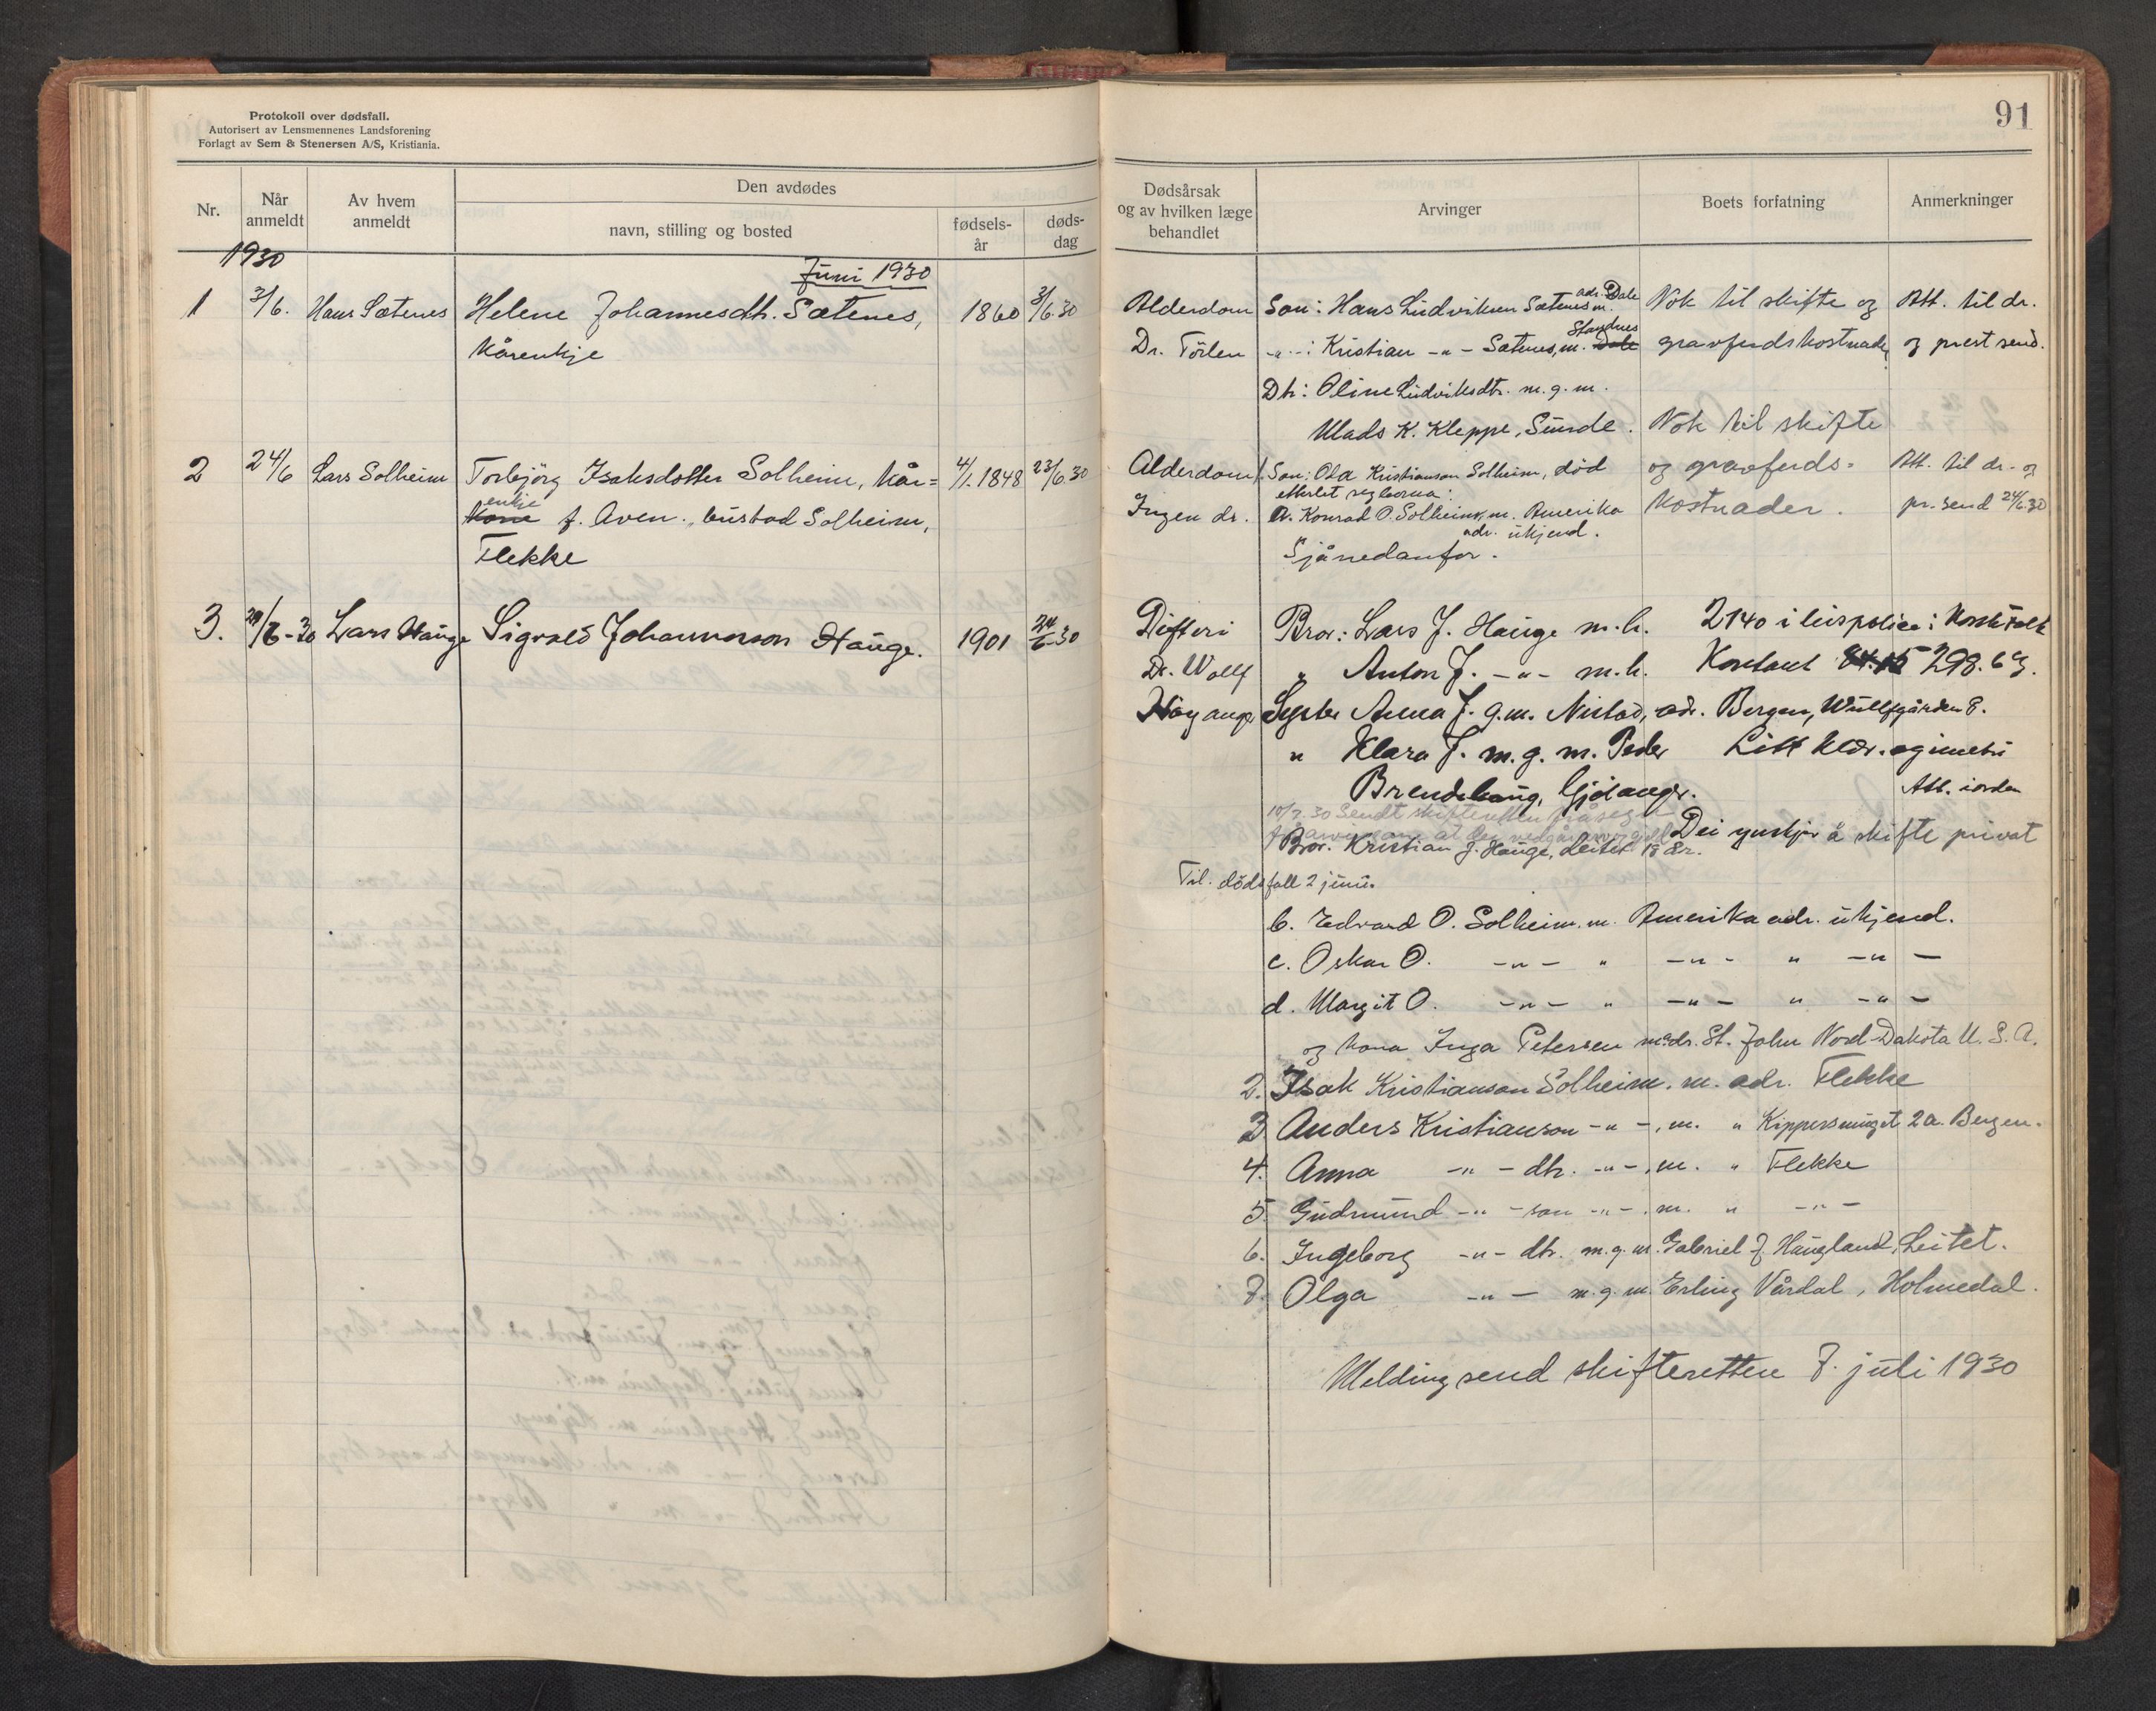 Protokoll over dødsfall.
Autorisert av Lensmennenes Landsforening
Forlagt av Sem & Stenersen A/S, Kristiania.
Nr.
Når anmeldt
Av hvem anmeldt
Den avdødes
navn, stilling og bosted
fødsels-år
døds-dag
1930
Juni 1930
1 3/6. Hans Sætenes Helene Johannesdtr. Sætenes, 1860 3/6.30
Kårenkje
2 24/6 Lars Solheim Torbjörg Isaksdotter Solheim, kår= 4/1.1848 23/6.30
enkje
Kone f. Aven., bustad Solheim,
Flekke
3. 28/6-30 Lars Hauge Sigvald Johannesson Hauge. 1901 24/6.30
91
Dødsårsak
og av hvilken læge
behandlet
Arvinger
Boets forfatning
Anmerkninger
Alderdom Son: Hans Ludviksen Sætenes m. adr. Dale Nok til skifte og Att. til dr.
Dr. Törlen -"-: Kristian -"- Sætenes, m. Dale Standnes gravferdskostnader og prest send.
Dtr: Oline Ludviksdtr. m.g.m.
Mads K. Kleppe, Sunde. Nok til skifte
Alderdom 1. Son: Ola Kristianson Solheim, död og gravferds- Att. til dr. og
etterlet seg borna:
Ingen dr. a. Konrad O. Solheim, m. Amerika kostnader. pr. send 24/6.30
adr. ukjend.
Sjå nedanfor.
Difteri Bror: Lars J. Hauge m.h. 2140 i livspolice i Norsk Folk
Dr. Wolff " Anton J. -"- m.h. Kontant 298.63.
Høyanger Syster Anna J. g.m. Nistad, adr. Bergen, Wulffgården 8.
" Klara J. m.g.m. Peder Litt klær. og
Brendehaug, Gjölanger. Att. i orden
10/7.30 Sendt skifteretten
Dei ynskjer å skifte privat
Bror. Kristian J. Hauge, Leitet 18 år.
Til. dödsfall 2 juni.
b. Edvard O. Solheim. m. Amerika adr. ukjend.
c. Oskar O. -"- " -"- " -"-
d. Margit O. -"- " -"- " -"-
og kona Inga Petersen adr. St. John Nord-Dakota U.S.A.
2. Isak Kristianson Solheim. m. adr. Flekke
3 Anders Kristianson -"-, m. " Kippersmuget 2a. Bergen.
4. Anna -"- dtr. -"-, m. " Flekke
5. Gudmund -"- son -"-. m. " -"-
6. Ingeborg -"- dtr. m.g.m. Gabriel J. Haugland, Leitet.
7. Olga -"- m.g.m. Erling Vårdal, Holmedal.
Melding send skifteretten 7. juli 1930